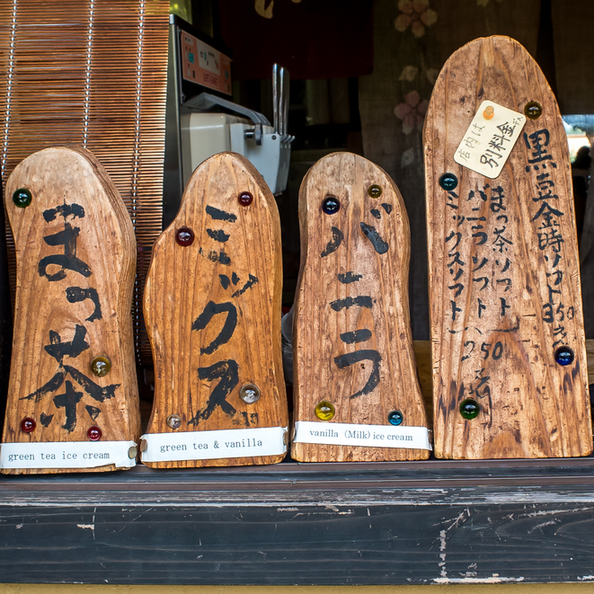 まっ茶
green tea ice cream
ミックス
green tea & vanilla
バニラ
vanilla (Milk) ice cream
店内は
別料金です
黒豆金時ソフト350
まっ茶ソフト
バニラソフト
ミックスソフト
250